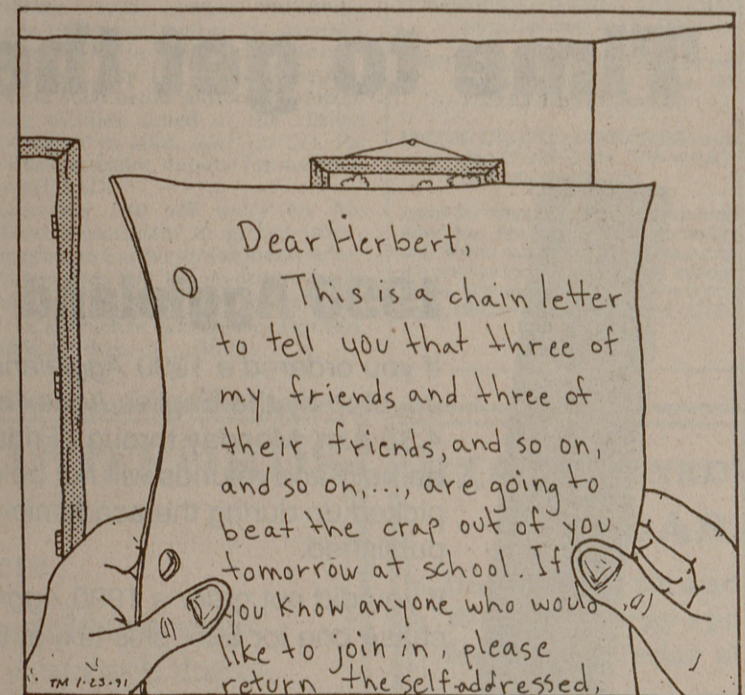 Dear Herbert,
This is a chain letter
to tell you that three of
my friends and three of
their friends, and so on,
and so on,..., are going to
beat the crap out of you
tomorrow at school. If
you know anyone who would
like to join in, please
return the self-addressed,
TM 1-23-91